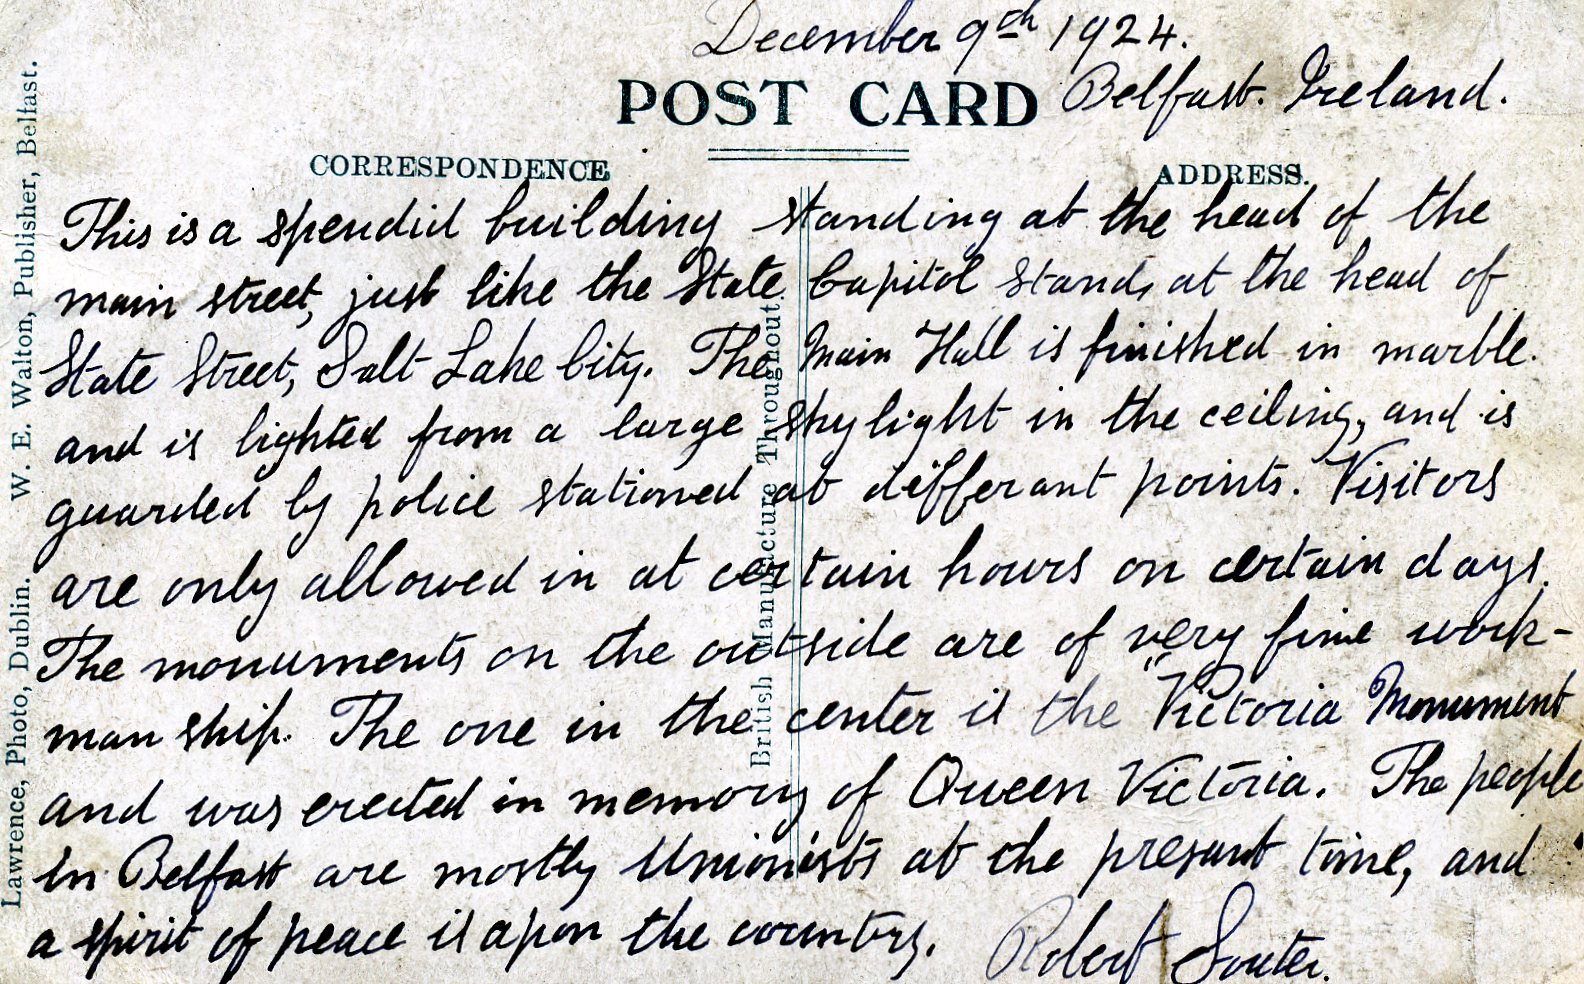 December 9th 1924.
POST CARD
Belfast. Ireland.
CORRESPONDENCE
ADDRESS.
This is a spendid building standing at the head of the
main street, just like the State Capitol stands at the head of
State Street, Salt Lake City. The Main Hall is finished in marble.
and is lighted from a large skylight in the ceiling, and is
guarded by police stationed at differant points. Visitors
are only allowed in at certain hours on certain days.
The monuments on the outside are of very fine work-
manship. The one in the center is the "Victoria Monument
and was erected in memory of Queen Victoria. The people
in Belfast are mostly Unionists at the present time, and
a spirit of peace is apon the country.
Robert Souter.
Lawrence, Photo, Dublin. W. E. Walton, Publisher, Belfast.
British Manufacture Throughout.